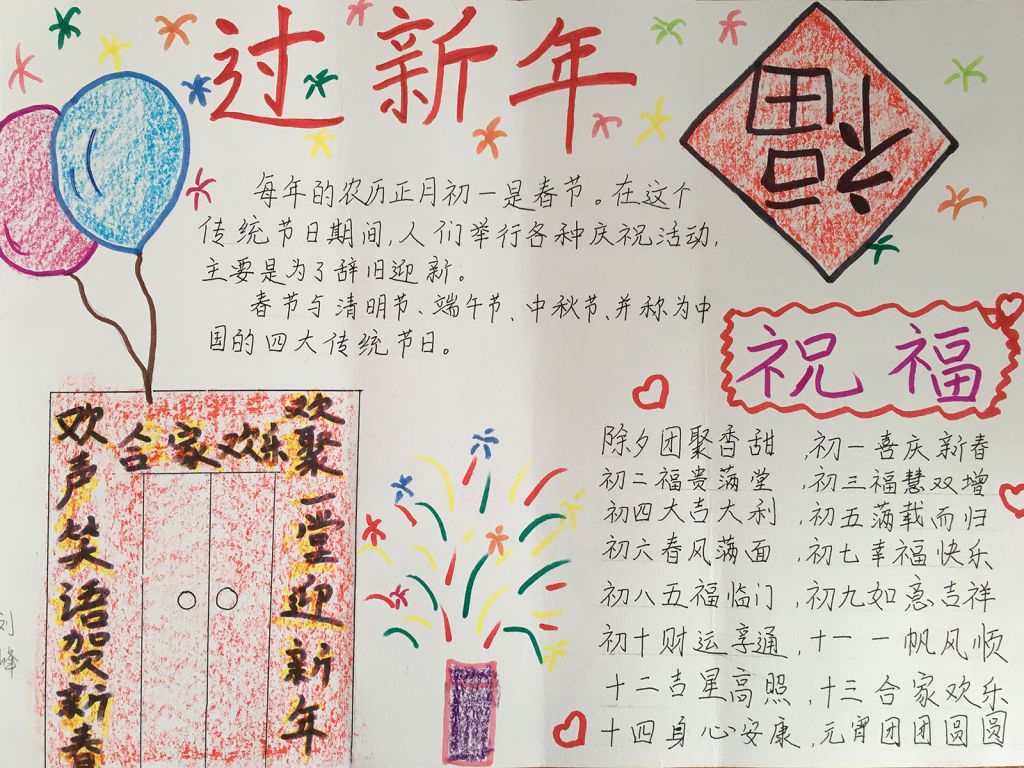 过新年
福
每年的农历正月初一是春节。在这个
传统节日期间,人们举行各种庆祝活动,
主要是为了辞旧迎新。
春节与清明节、端午节、中秋节、并称为中
国的四大传统节日。
祝福
除夕团聚香甜,初一喜庆新春
初二福贵满堂,初三福慧双增
初四大吉大利,初五满载而归
初六春风满面,初七幸福快乐
初八五福临门,初九如意吉祥
初十财运享通,十一一帆风顺
十二吉星高照,十三合家欢乐
十四身心安康,元宵团团圆圆
合家欢乐
欢声笑语贺新春
欢聚一堂迎新年
刘
峰